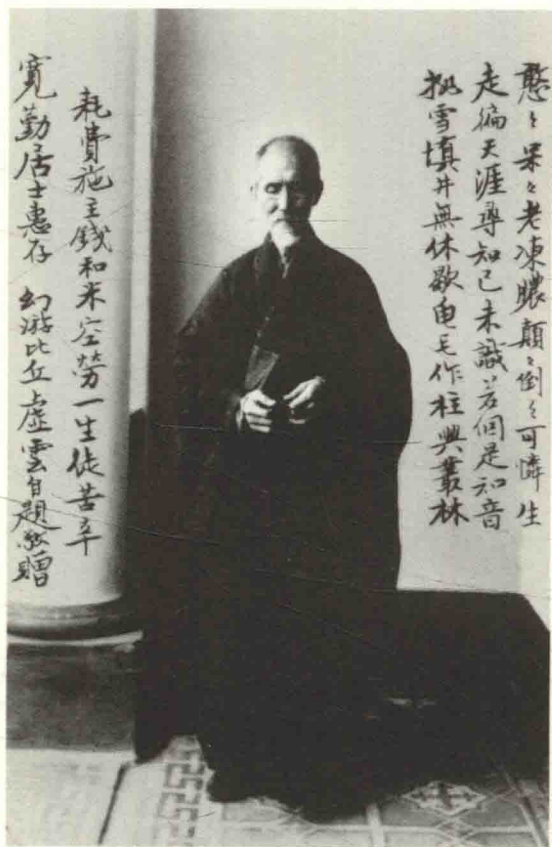 憨〻呆〻老凍膿顛〻倒〻可憐生
走徧天涯尋知己未識若個是知音
挑雪填井無休歇龜毛作柱興叢林
耗費施主錢和米空勞一生徒苦辛
寬勤居士惠存 幻游比丘虛雲自題敬贈